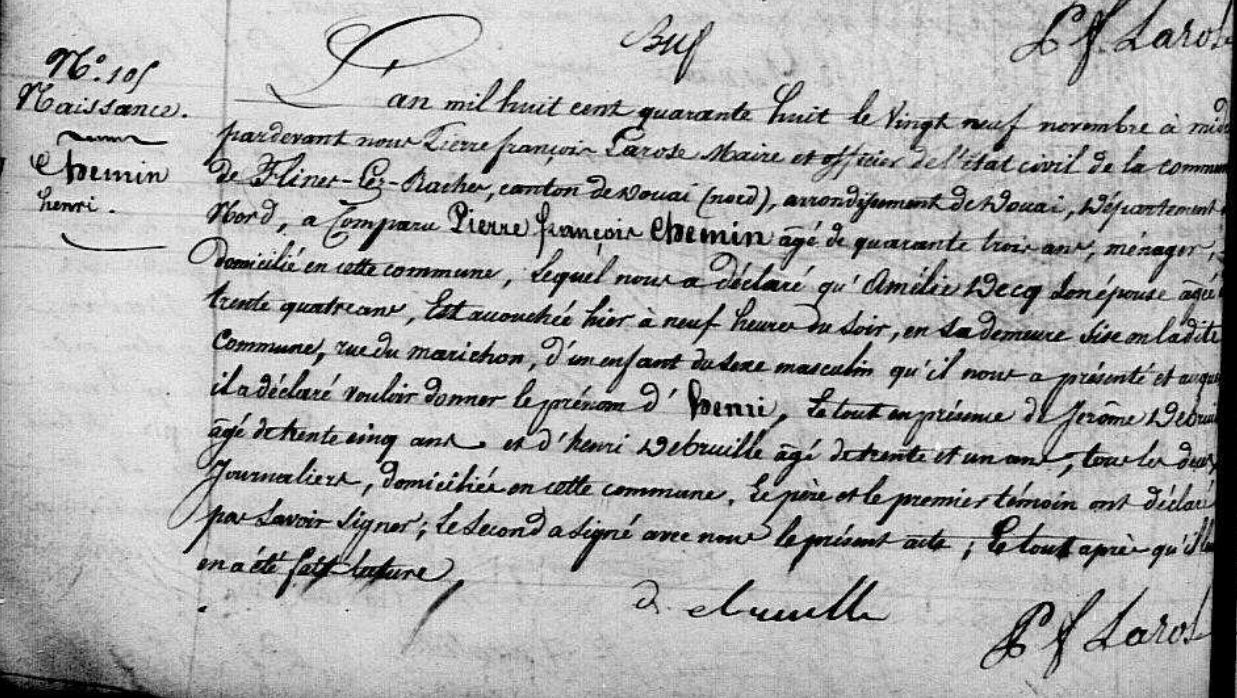 P f Laros
N.° 105
Naissance.
Chemin
henri.
L'an mil huit cent quarante huit le Vingt neuf novembre à midi
pardevant nous Pierre françois Larose Maire et officier de l'état civil de la commun
de Flines-Lez-Raches, canton de Douai (nord), arrondissement de Douai, Département
Nord, a Comparu Pierre françois Chemin âgé de quarante trois ans, ménager,
Domicilié en cette commune, Lequel nous a déclaré qu'Amélie Decq Son épouse âgée
trente quatre ans, Est accouchée hier à neuf heures du Soir, en Sa demeure Sise en ladite
Commune, rue du marichon, d'un enfant du Sexe masculin qu'il nous a présenté et auque
il a déclaré vouloir donner le prénom d'henri, Le tout en présence de Jerôme Debrui
âgé de trente cinq ans et d'henri Debruille âgé de trente et un ans, tous les deux
Journaliers, domiciliés en cette commune. Le père et le premier témoin ont déclaré
pas Savoir Signer; Le Second a Signé avec nous le présent acte; Le tout après qu'il l
en a été fait lecture
debruille
P f Laros